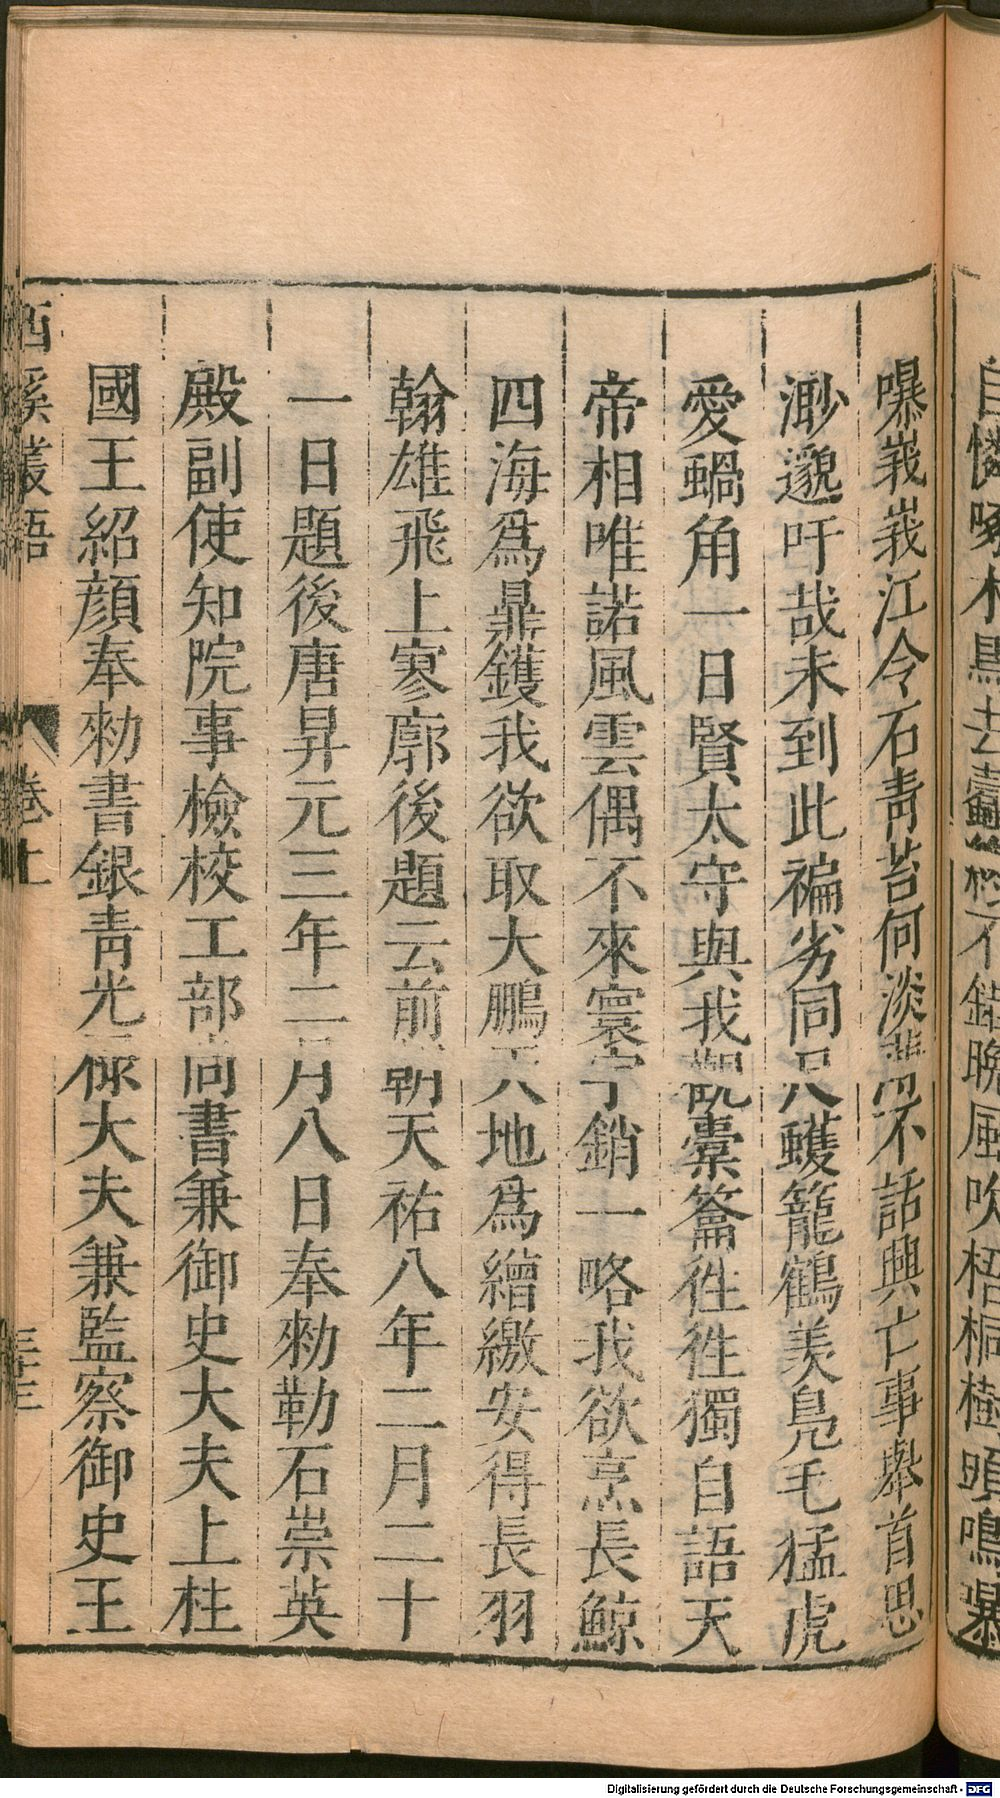 自憐啄木鳥去蠹終不錯晚風吹梧桐樹頭鳴曝
曝峩峩江令石青苔何淡薄不話興亡事舉首思
渺邈吁哉未到此褊劣同尺蠖籠鶴羨鳧毛猛虎
愛蝸角一日賢太守與我觀橐籥徃徃獨自語天
帝相唯諾風雲偶不來寰宇銷一略我欲烹長鯨
四海爲鼎鑊我欲取大鵬天地爲繒繳安得長羽
翰雄飛上寥廓後題云前朝天祐八年二月二十
一日題後唐昇元三年二月八日奉勑勒石崇英
殿副使知院事檢校工部尚書兼御史大夫上柱
國王紹顏奉勑書銀青光祿大夫兼監察御史王
西溪叢語 卷上